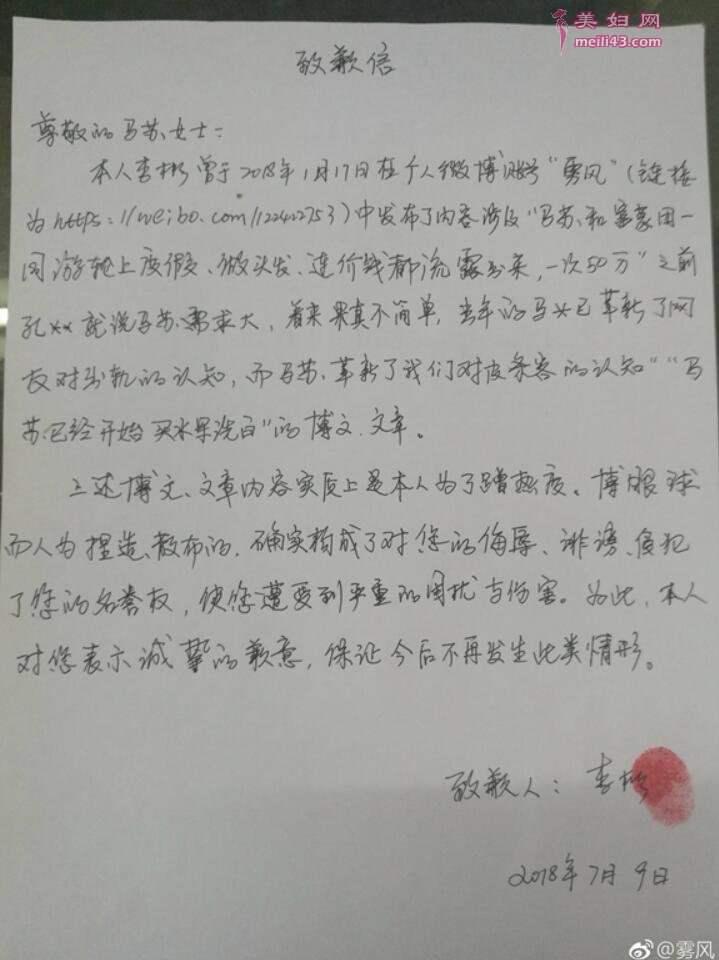 美妇网
meili43.com
致歉信
尊敬的马苏女士：
本人李彬曾于2018年1月17日在个人微博账号“雾风”（链接
为https://weibo.com/122422753）中发布了内容涉及“马苏和富豪团一
同游轮上度假、做头发、连价钱都流露出来，一次50万”“之前
孔**就说马苏需求大，看来果真不简单，当年的马*已革新了网
友对出轨的认知，而马苏、革新了我们对皮条客的认知”“马
苏已经开始买水果洗白”的博文、文章。
上述博文、文章内容实质上是本人为了蹭热度。博眼球
而人为捏造、散布的，确实构成了对您的侮辱、诽谤、侵犯
了您的名誉权，使您遭受到严重的困扰与伤害。为此，本人
对您表示诚挚的歉意，保证今后不再发生此类情形。
致歉人：李彬
2018年7月9日
@雾风